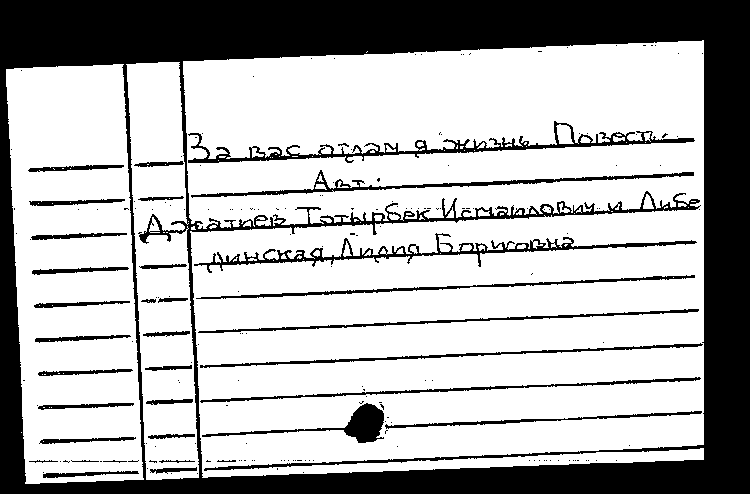 За вас отдам я жизнь. Повесть.
Авт.:
Джатиев, Тотырбек Исмаилович и Либе
динская, Лидия Борисовна